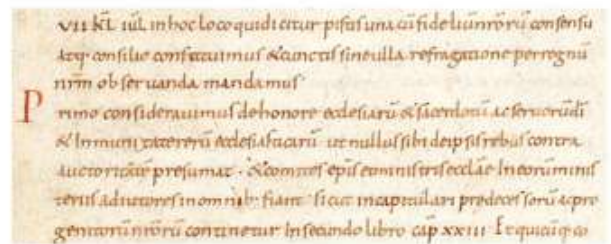 VII kł iuł in hoc loco qui dicitur pistis una cū fideliū nr̄orū consensu
atq; consilio constituimus & cunctis sine ulla refragatione per regnū
nr̄m observanda mandamus
Primo consideravimus de honore ecclesiarū & sacerdotū ac servorū dī
& inmunitate rerū ecclesiasticarū ut nullus sibi de ipsis rebus contra
auctoritatē presumat · & comites ep̄is & ministris ecclāe In eorū minis
teriis adiutores in omnib; fiant · sicut in capitulari predecessorū ac pro
genitorū nr̄orū continetur In secundo libro cap̄ XXIII · Et quicūq; co